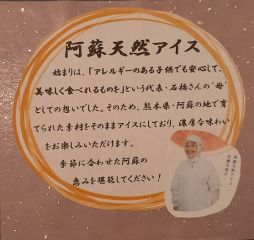 阿蘇天然アイス
始まりは、「アレルギーのある子供でも安心して、
美味しく食べれるものを」という代表・石橋さんの“母”
としての想いでした。そのため、熊本県・阿蘇の地で育
てられた素材をそのままアイスにしており、濃厚な味わい
をお楽しみいただけます。
季節に合わせた阿蘇の
恵みを堪能してください！
阿蘇天然アイス